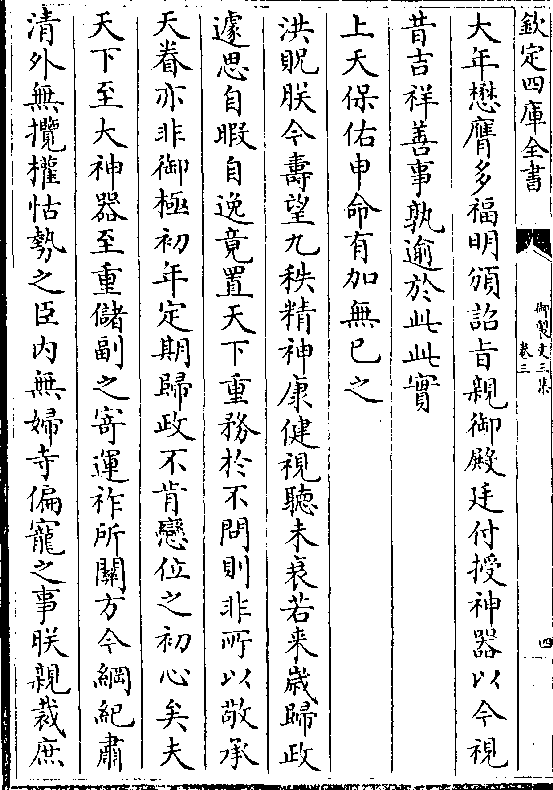 欽定四庫全書
御製文三集
卷三
四
大年懋膺多福明頒詔旨親御殿廷付授神器以今視
昔吉祥善事孰逾於此此實
上天保佑申命有加無已之
洪貺朕今壽望九秩精神康健視聽未衰若来嵗歸政
遽思自暇自逸竟置天下重務於不問則非所以敬承
天眷亦非御極初年定期歸政不肯戀位之初心矣夫
天下至大神器至重儲副之寄運祚所關方今綱紀肅
清外無攬權怙勢之臣内無婦寺偏寵之事朕親裁庶